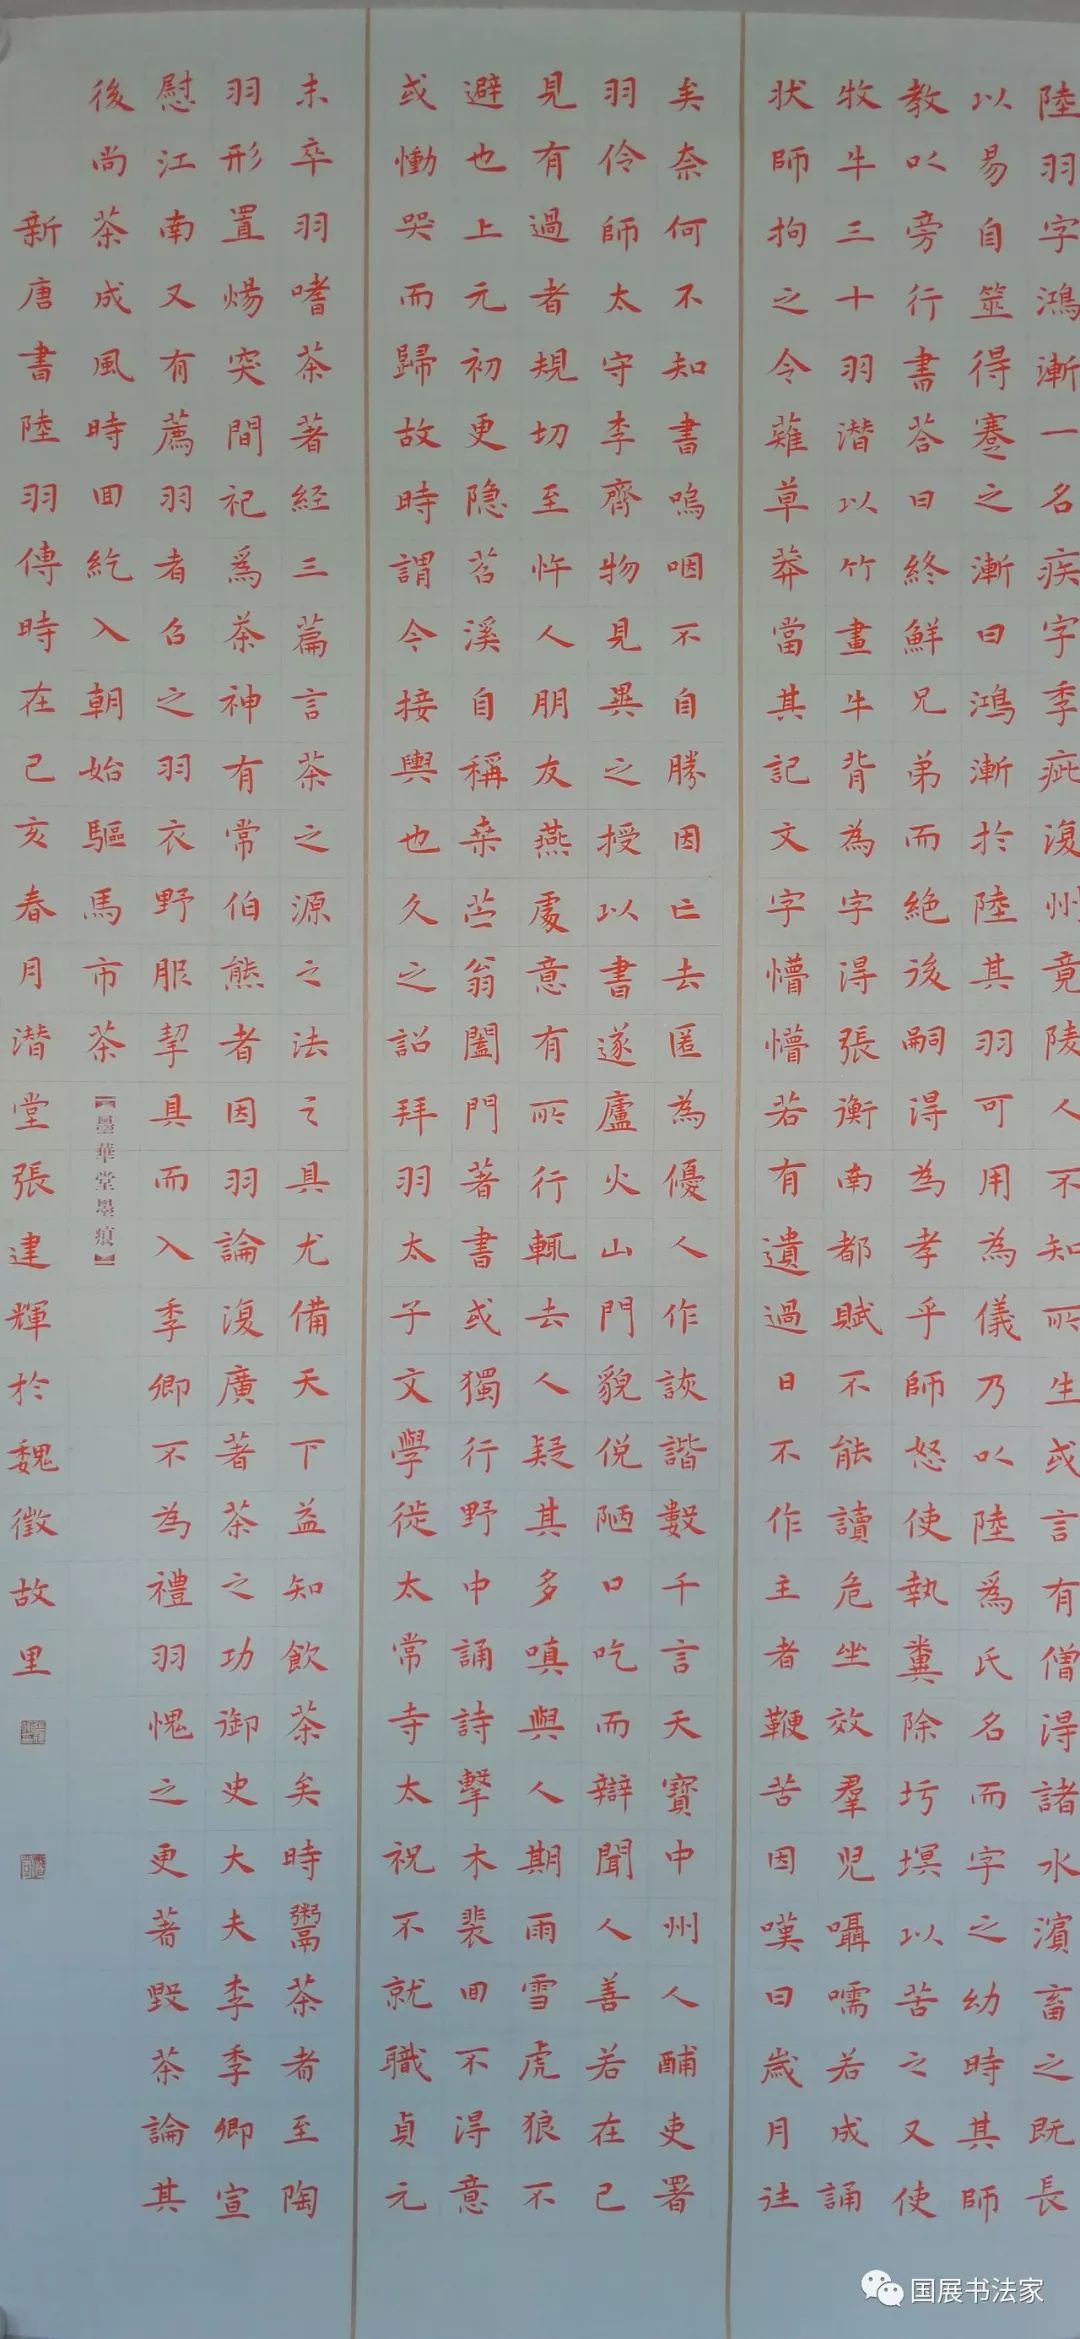 陸羽字鴻漸一名疾字季疵復州竟陵人不知所生或言有僧得諸水濱畜之既長
以易自筮得蹇之漸曰鴻漸於陸其羽可用為儀乃以陸爲氏名而字之幼時其師
教以旁行書荅曰終鮮兄弟而絕後嗣得為孝乎師怒使執糞除圬塓以苦之又使
牧牛三十羽潛以竹畫牛背為字得張衡南都賦不能讀危坐效羣児囁嚅若成誦
状師拘之令薙草莽當其記文字懵懵若有遺過日不作主者鞭苦因嘆曰歲月往
矣奈何不知書嗚咽不自勝因亡去匿為優人作詼諧數千言天寶中州人酺吏署
羽伶師太守李齊物見異之授以書遂廬火山門貌侻陋口吃而辯聞人善若在己
見有過者規切至忤人朋友燕處意有所行輒去人疑其多嗔與人期雨雪虎狼不
避也上元初更隐苕溪自稱桒苎翁闔門著書或獨行野中誦詩擊木裴回不得意
或慟哭而歸故時謂今接輿也久之詔拜羽太子文學徙太常寺太祝不就職貞元
末卒羽嗜茶著経三篇言茶之源之法之具尤備天下益知飲茶矣時鬻茶者至陶
羽形置煬突間祀爲茶神有常伯熊者因羽論復廣著茶之功御史大夫李季卿宣
慰江南又有薦羽者召之羽衣野服挈具而入季卿不为禮羽愧之更著毀茶論其
後尚茶成風時回紇入朝始驅馬市茶
【墨華堂墨痕】
新唐書陸羽傳時在己亥春月潛堂張建輝於魏徵故里
国展书法家